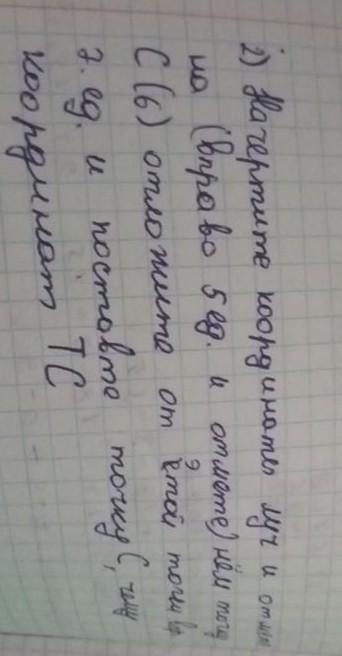 2) Начертите координаты луч и отм
на (вправо 5 ед. и отмете) нём точ
С (6) отложите от этой точки
7. ед. и поставте точку С,
координат ТС